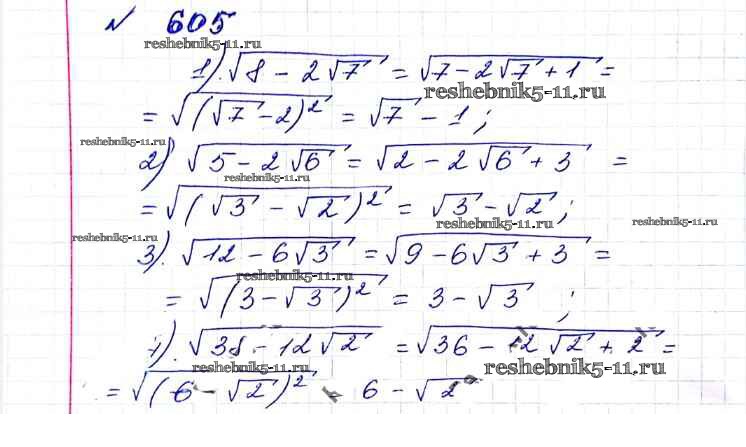 № 605
reshebnik5-11.ru
1). √(8 - 2√7) = √(7 - 2√7 + 1) =
reshebnik5-11.ru
= √((√7 - 2)²) = √7 - 1;
reshebnik5-11.ru
2) √(5 - 2√6) = √(2 - 2√6 + 3) =
reshebnik5-11.ru
= √((√3 - √2)²) = √3 - √2;
reshebnik5-11.ru
reshebnik5-11.ru
reshebnik5-11.ru
3). √(12 - 6√3) = √(9 - 6√3 + 3) =
reshebnik5-11.ru
= √((3 - √3)²) = 3 - √3;
4). √(38 - 12√2) = √(36 - 12√2 + 2) =
reshebnik5-11.ru
reshebnik5-11.ru
= √((6 - √2)²) = 6 - √2